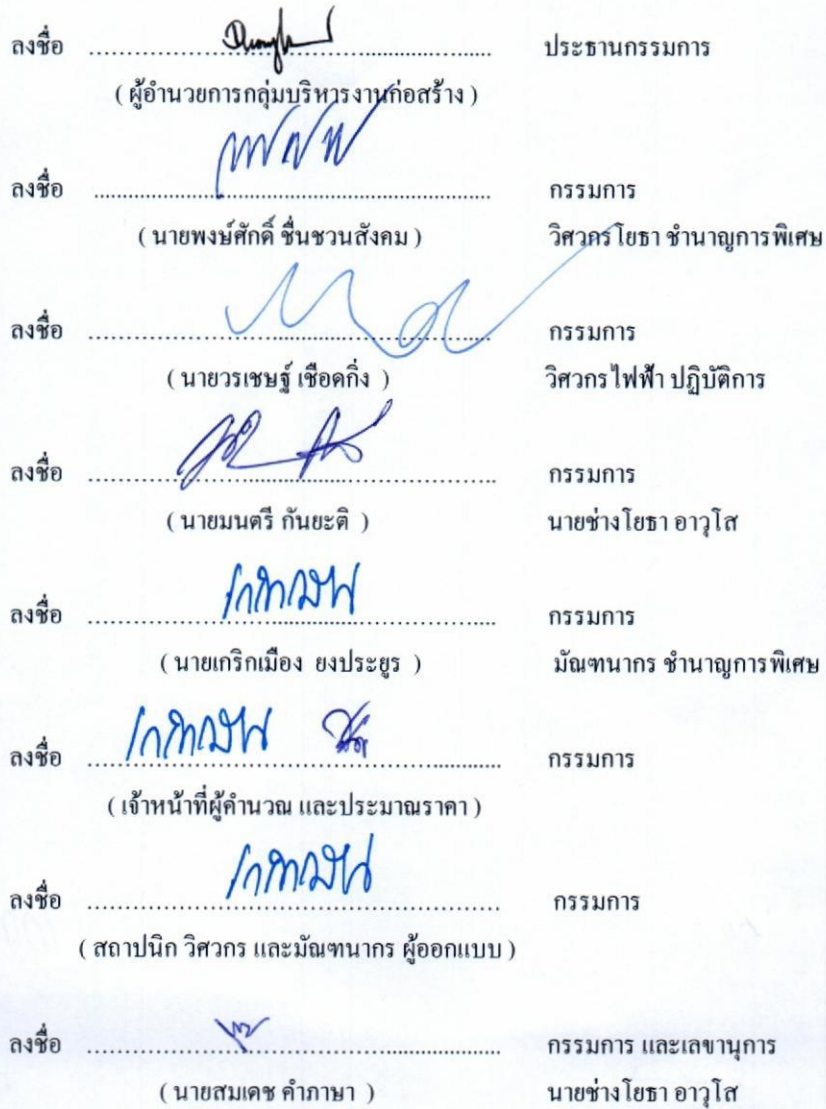 ลงชื่อ ................................................ ประธานกรรมการ
( ผู้อำนวยการกลุ่มบริหารงานก่อสร้าง )
ลงชื่อ ................................................ กรรมการ
( นายพงษ์ศักดิ์ ชื่นชวนสังคม ) วิศวกรโยธา ชำนาญการพิเศษ
ลงชื่อ ................................................ กรรมการ
( นายวรเชษฐ์ เชือดกิ่ง ) วิศวกรไฟฟ้า ปฏิบัติการ
ลงชื่อ ................................................ กรรมการ
( นายมนตรี กันยะติ ) นายช่างโยธา อาวุโส
ลงชื่อ ................................................ กรรมการ
( นายเกริกเมือง ยงประยูร ) มัณฑนากร ชำนาญการพิเศษ
ลงชื่อ ................................................ กรรมการ
( เจ้าหน้าที่ผู้คำนวณ และประมาณราคา )
ลงชื่อ ................................................ กรรมการ
( สถาปนิก วิศวกร และมัณฑนากร ผู้ออกแบบ )
ลงชื่อ ................................................ กรรมการ และเลขานุการ
( นายสมเดช คำภาษา ) นายช่างโยธา อาวุโส